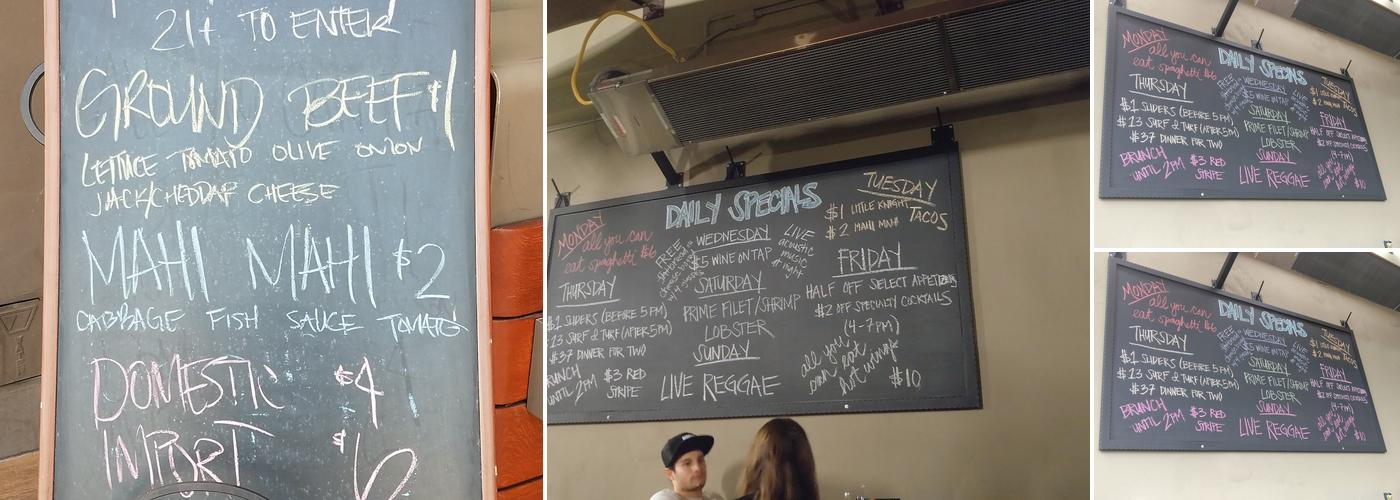 21+ TO ENTER
GROUND BEEF $1
LETTUCE TOMATO OLIVE ONION
JACK/CHEDDAR CHEESE
MAHI MAHI $2
CABBAGE FISH SAUCE TOMATO
DOMESTIC $4
IMPORT $6
DAILY SPECIALS
MONDAY
all you can
eat spaghetti $6
THURSDAY
$1 SLIDERS (BEFORE 5PM)
$13 SURF & TURF (AFTER 5PM)
$37 DINNER FOR TWO
BRUNCH
UNTIL 2PM
$3 RED
STRIPE
FREE
WEDNESDAY
$5 WINE ON TAP
LIVE
acoustic
music
at night
SATURDAY
PRIME FILET/SHRIMP
LOBSTER
SUNDAY
LIVE REGGAE
TUESDAY
$1 LITTLE KNIGHT
$2 MAHI MAHI
TACOS
FRIDAY
HALF OFF SELECT
$2 OFF SPECIALTY COCKTAILS
(4-7PM)
all you
can eat
hot wings
$10
MONDAY
all you can
eat spaghetti $6
DAILY SPECIALS
THURSDAY
$1 SLIDERS (BEFORE 5PM)
$13 SURF & TURF (AFTER 5PM)
$37 DINNER FOR TWO
BRUNCH
UNTIL 2PM
$3 RED
STRIPE
WEDNESDAY
$5 WINE ON TAP
SATURDAY
PRIME FILET/SHRIMP
LOBSTER
SUNDAY
LIVE REGGAE
TUESDAY
TACOS
FRIDAY
HALF OFF SELECT
(4-7PM)
$10
MONDAY
all you can
eat spaghetti $6
DAILY SPECIALS
THURSDAY
$1 SLIDERS (BEFORE 5PM)
$13 SURF & TURF (AFTER 5PM)
$37 DINNER FOR TWO
BRUNCH
UNTIL 2PM
$3 RED
STRIPE
WEDNESDAY
$5 WINE ON TAP
SATURDAY
PRIME FILET/SHRIMP
LOBSTER
SUNDAY
LIVE REGGAE
TUESDAY
TACOS
FRIDAY
HALF OFF SELECT
(4-7PM)
$10